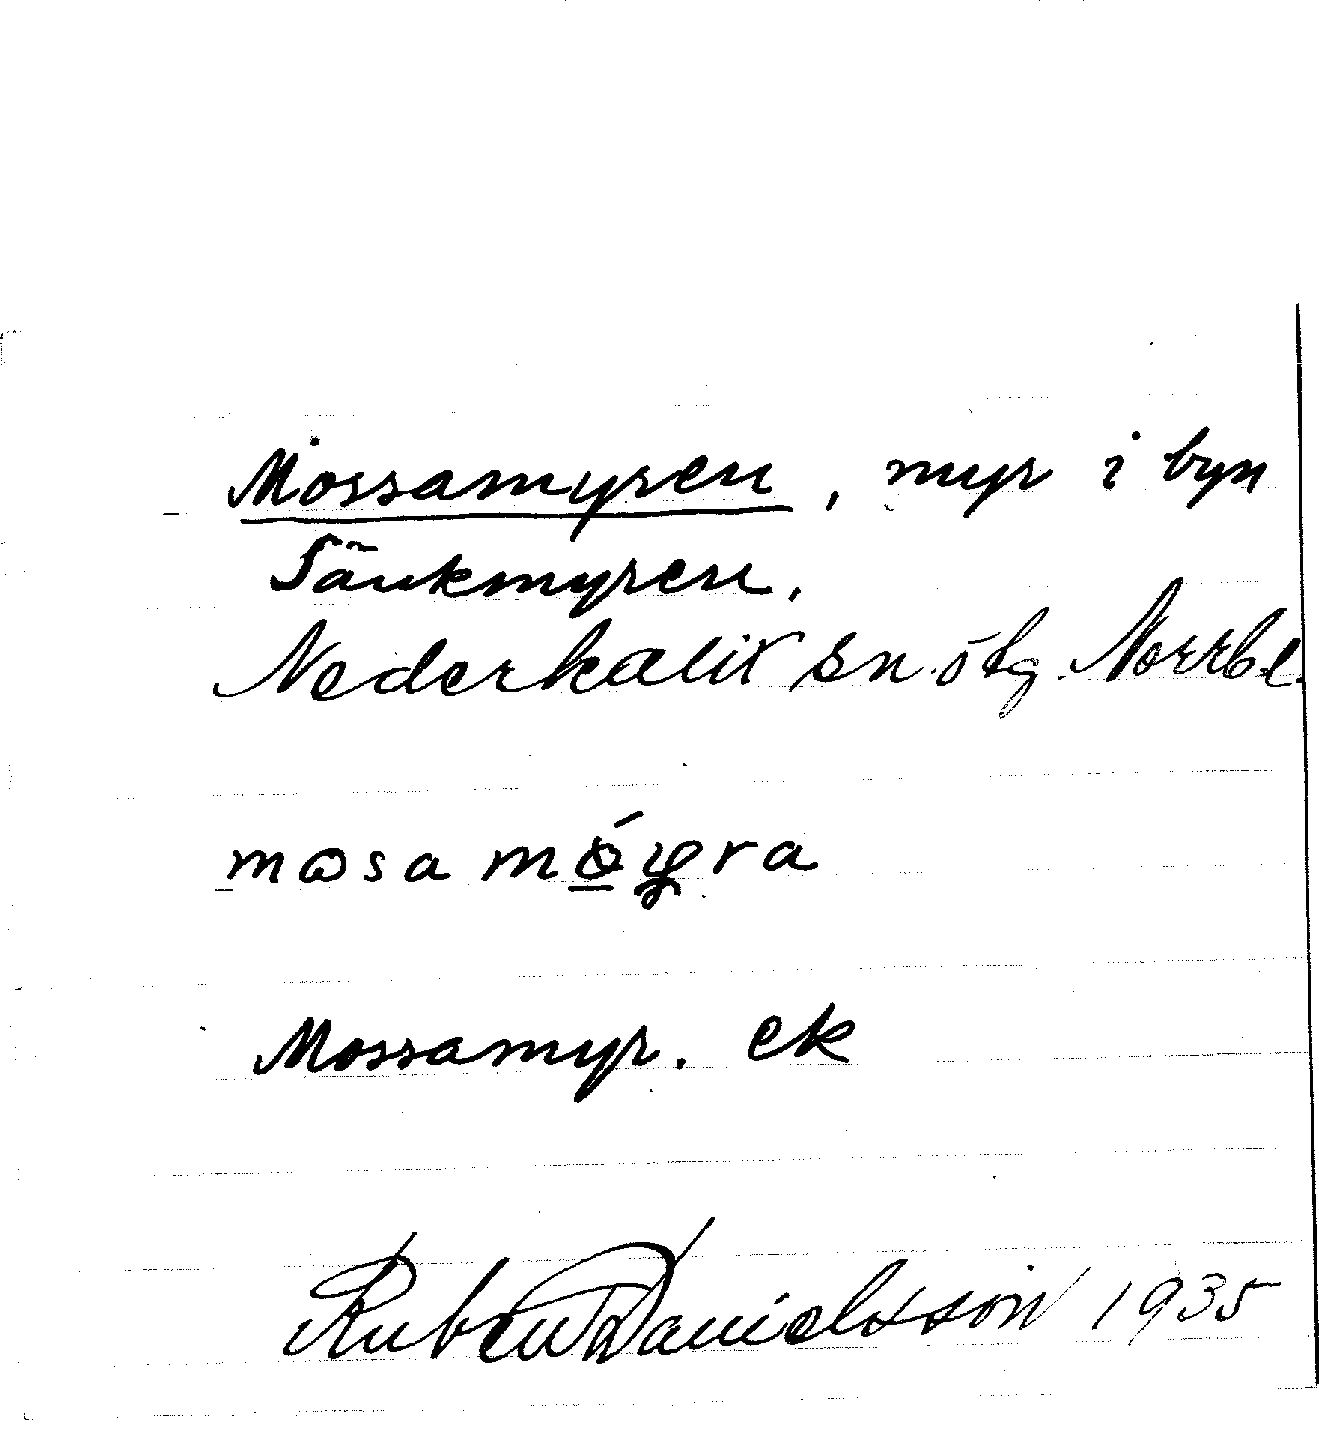 Mossamyren, myr i byn
Sänkmyren.
Nederkalix sn. ö tg. Norrb l.
Mossamyr. ek
Ruben Danielsson 1935